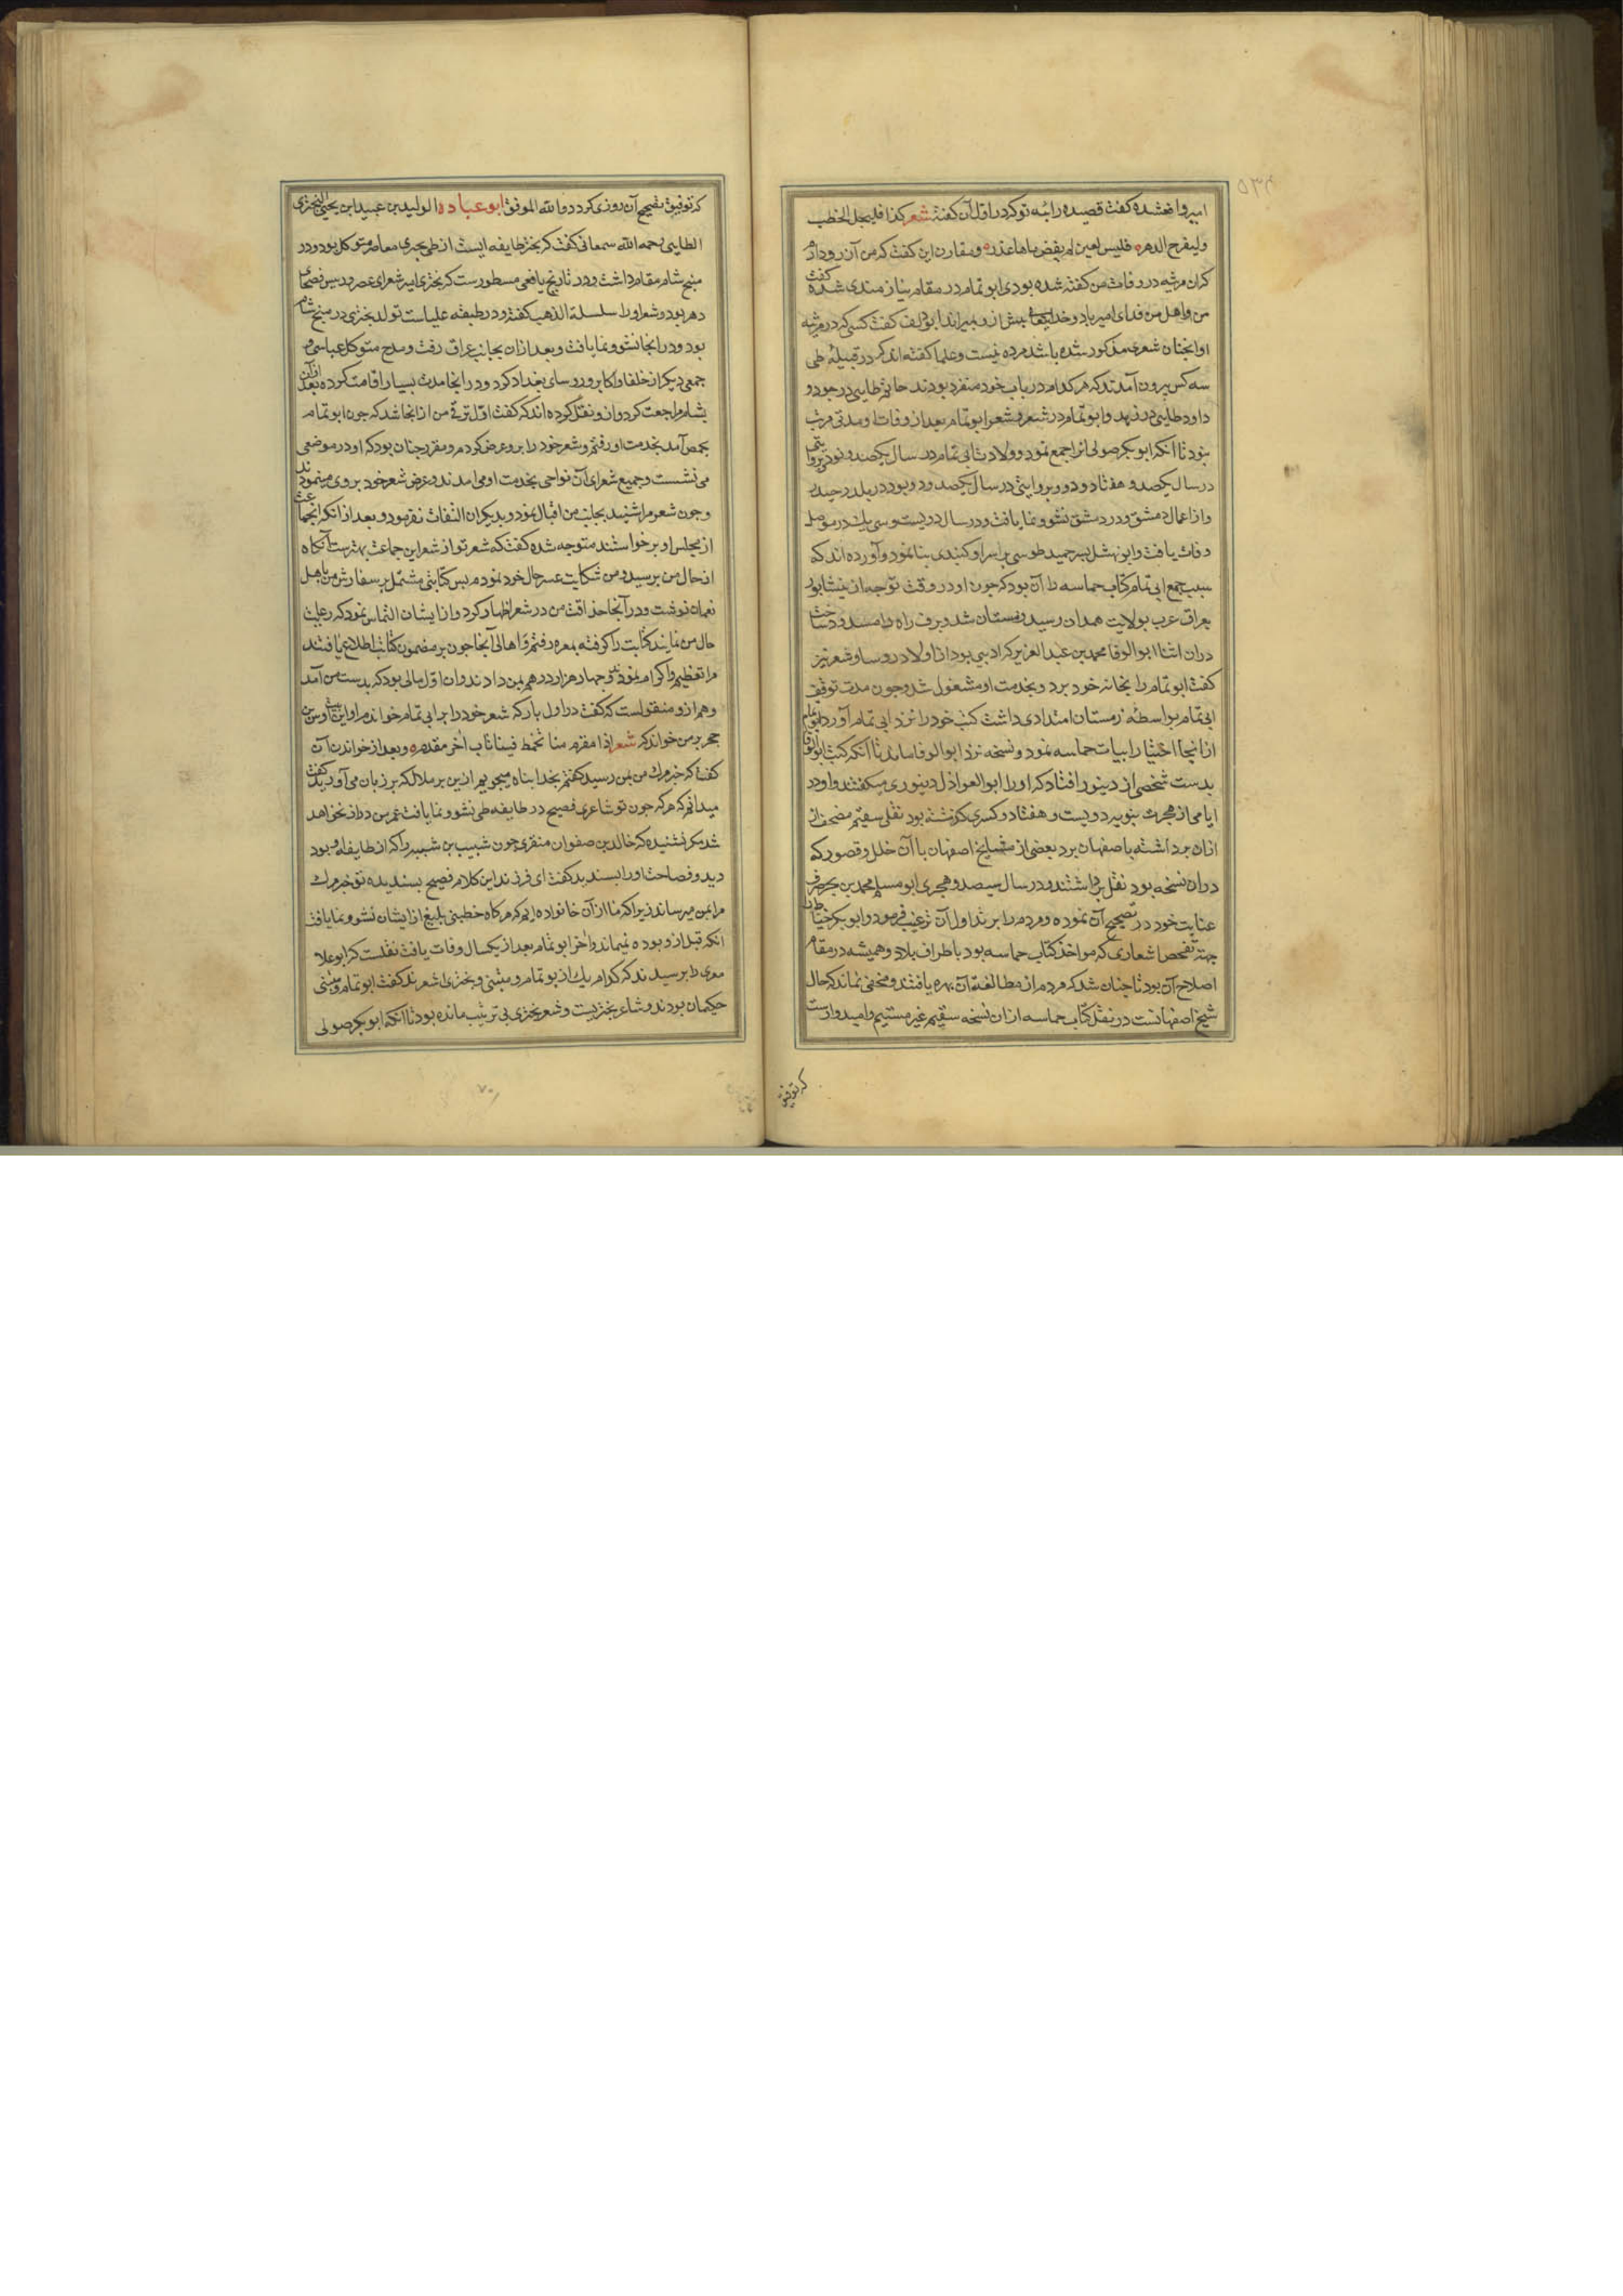 ۵۳۴
امیر واقع شده گفت قصیده رائیه تو که در اول آن گفتهٔ شعر کذا فلیجل الخطب
ولیفرح الدهره فلیس لعین لم یفض ماءها عذره و مقارن این گفت که من آن روز دارم
که آن مرثیه در وفات من گفته شده بودی ابو تمام در مقام نیازمندی شده گفت
من و اهل من فدای امیر باد و خدایتعالی پیش ازو بمیراند ابو دلف گفت کسی که در مرثیه
او اینچنان شعری مذکور شده باشد مرده نیست و علما گفته اند که در قبیلهٔ طی
سه کس بیرون آمدند که هر کدام در باب خود منفرد بودند حاتم طایی در جود و
داود طایی در زهد و ابو تمام در شعر و شعر ابو تمام بعد از وفات او مدتی مرتب
نبود تا آنکه ابو بکر صولی انرا جمع نمود و ولادت ابی تمام در سال یکصد و نود بروایتی
در سال یکصد و هفتاد و دو و بروایتی در سال یکصد و دو بود در بلد و حیدر
و از اعمال دمشق و در دمشق نشو و نما یافت و در سال دویست و سی یک در موصل
وفات یافت و ابو نهشل پسر حمید طوسی بر سر او گنبدی بنا نمود و آورده اند که
سبب جمع ابی تمام کتاب حماسه را آن بود که چون او در وقت توجه از نیشابور
بعراق عرب بولایت همدان رسید زمستان شد و برف راه را مسدود ساخت
در ان اثنا ابو الوفا محمد بن عبد العزیز که ادیبی بود از اولاد روسا و شعر نیز
گفت ابو تمام را بخانه خود برد و بخدمت او مشغول شد و چون مدت توقف
ابی تمام بواسطهٔ زمستان امتدادی داشت کتب خود را نزد ابی تمام آورد ابو تمام
از انجا اختیار ابیات حماسه نمود و نسخه نزد ابو الوفا ماند تا آنکه کتب ابو الوفا
بدست شخصی از دینور افتاد که او را ابو العواذل دینوری میگفتند و او در
ایامی از هجرت نبویه دویست و هفتاد و کسری گذشته بود نقلی سقیم مصحف از
ازان برداشته باصفهان برد بعضی از مشایخ اصفهان با آن خلل و قصور که
در ان نسخه بود نقل برداشتند و در سال سیصد و هجری ابو مسلم محمد بن بحر صرف
عنایت خود در تصحیح آن نموده و مردم را بر تداول آن ترغیب فرمود و ابو بکر خیاط
جهت تفحص اشعاری که مواخذ کتاب حماسه بود باطراف بلاد و همیشه در مقام
اصلاح آن بود تا چنان شد که مردم از مطالعهٔ آن بهره یافتند و مخفی نماند که حال
شیخ اصفهانست در نقل کتاب حماسه از ان نسخه سقیم غیر مستقیم و امیدوارست
که توفیق
که توفیق تصحیح آن روزی کردد والله الموفق ابو عباده الولید بن عبید ابن یحیی البحتری
الطایی رحمه الله سمعانی گفت که بحتر طایفه ایست از طی بحتری معاصر متوکل بود و در
منبج شام مقام داشت و در تاریخ یافعی مسطورست که بحتری امیر شعرای عصر و رییس فصحای
دهر بود و شعر او را سلسلة الذهب گفته و در طبقه علیاست تولد بحتری در منبج شام
بود و در انجا نشو و نما یافت و بعد از ان بجانب عراق رفت و مدح متوکل عباسی و
جمعی دیگر از خلفا و اکابر و روسای بغداد کرد و در انجا مدت بسیار اقامت کرده بعد از آن
بشام مراجعت کرد و ازو نقل کرده اند که گفت اول ترقی من از انجا شد که چون ابو تمام
بحمص آمد بخدمت او رفتم و شعر خود را برو عرض کردم و مقرر چنان بود که او در موضعی
می نشست و جمیع شعرای آن نواحی بخدمت او می امدند و عرض شعر خود بر وی مینمودند
و چون شعر مرا شنید بجانب من اقبال نمود و بدیکران التفات نفرمود و بعد از انکه انجماعت
از مجلس او برخواستند متوجه شده گفت که شعر تو از شعر این جماعت بهترست آنکاه
از حال من پرسید و من شکایت عسر حال خود نمودم پس کتابتی مشتمل بر سفارش من باهل
نعمان نوشت و در آنجا حذاقت من در شعر اظهار کرد و از ایشان التماس نمود که رعایت
حال من نمایند کتابت را گرفته بمعره رفتم و اهالی آنجا چون بر مضمون کتابت اطلاع یافتند
مرا تعظیم و اکرام نمودند و چهار هزار درهم بمن دادند و ان اول مالی بود که بدست من آمد
و هم ازو منقولست که گفت در اول بار که شعر خود را بر ابی تمام خواندم او این بیت اوس بن
حجر بر من خواند که شعر اذا مقرم منا تخمط فینا ناب آخر مقدمه و بعد از خواندن آن
گفت که خبر مرک من بمن رسید گفتم بخدا پناه میجویم ازین بر ملال که بر زبان می آورید گفت
میدانم که هر که چون تو شاعری فصیح در طایفه طی نشو و نما یافت عمر من دراز نخواهد
شد مگر نشنیده که خالد بن صفوان منقری چون شبیب بن شیبه را که از طایفه او بود
دید و فصاحت او را بسندید گفت ای فرزند این کلام فصیح بسندیده تو خبر مرک
مرا بمن میرساند زیرا که ما از آن خانواده ایم که هر کاه خطیبی بلیغ از ایشان نشو و نما یافت
انکه قبل ازو بوده نمیماند و آخر ابو تمام بعد از یکسال وفات یافت نقلست که ابو علا
معری را پرسیدند که کدام یک از بو تمام و متنبی و بحتری اشعرند گفت ابو تمام و متنبی
حکیمان بودند و شاعر بحتریست و شعر بحتری بی ترتیب مانده بود تا آنکه ابو بکر صولی